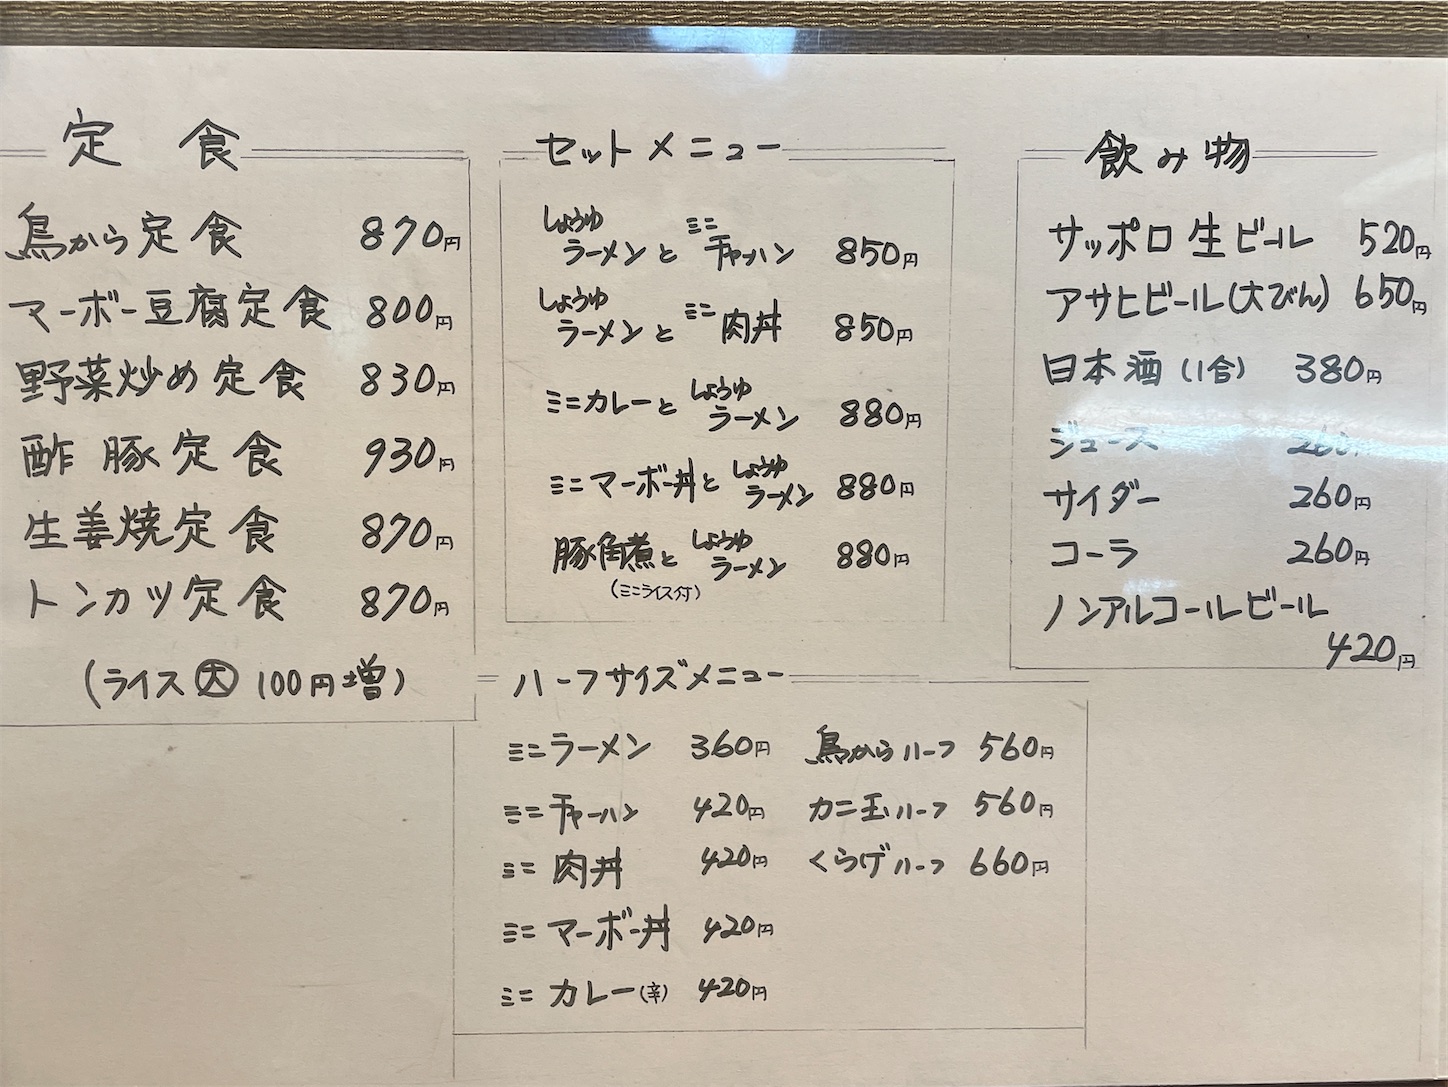 定食
鳥から定食 870円
マーボー豆腐定食 800円
野菜炒め定食 830円
酢豚定食 930円
生姜焼定食 870円
トンカツ定食 870円
(ライス大 100円増)
セットメニュー
しょうゆラーメンとミニチャーハン 850円
しょうゆラーメンとミニ肉丼 850円
ミニカレーとしょうゆラーメン 880円
ミニマーボー丼としょうゆラーメン 880円
豚角煮としょうゆラーメン 880円
(ミニライス付)
飲み物
サッポロ生ビール 520円
アサヒビール(大びん) 650円
日本酒(1合) 380円
ジュース 260円
サイダー 260円
コーラ 260円
ノンアルコールビール
420円
ハーフサイズメニュー
ミニラーメン 360円
ミニチャーハン 420円
ミニ肉丼 420円
ミニマーボー丼 420円
ミニカレー(辛) 420円
鳥からハーフ 560円
カニ玉ハーフ 560円
くらげハーフ 660円